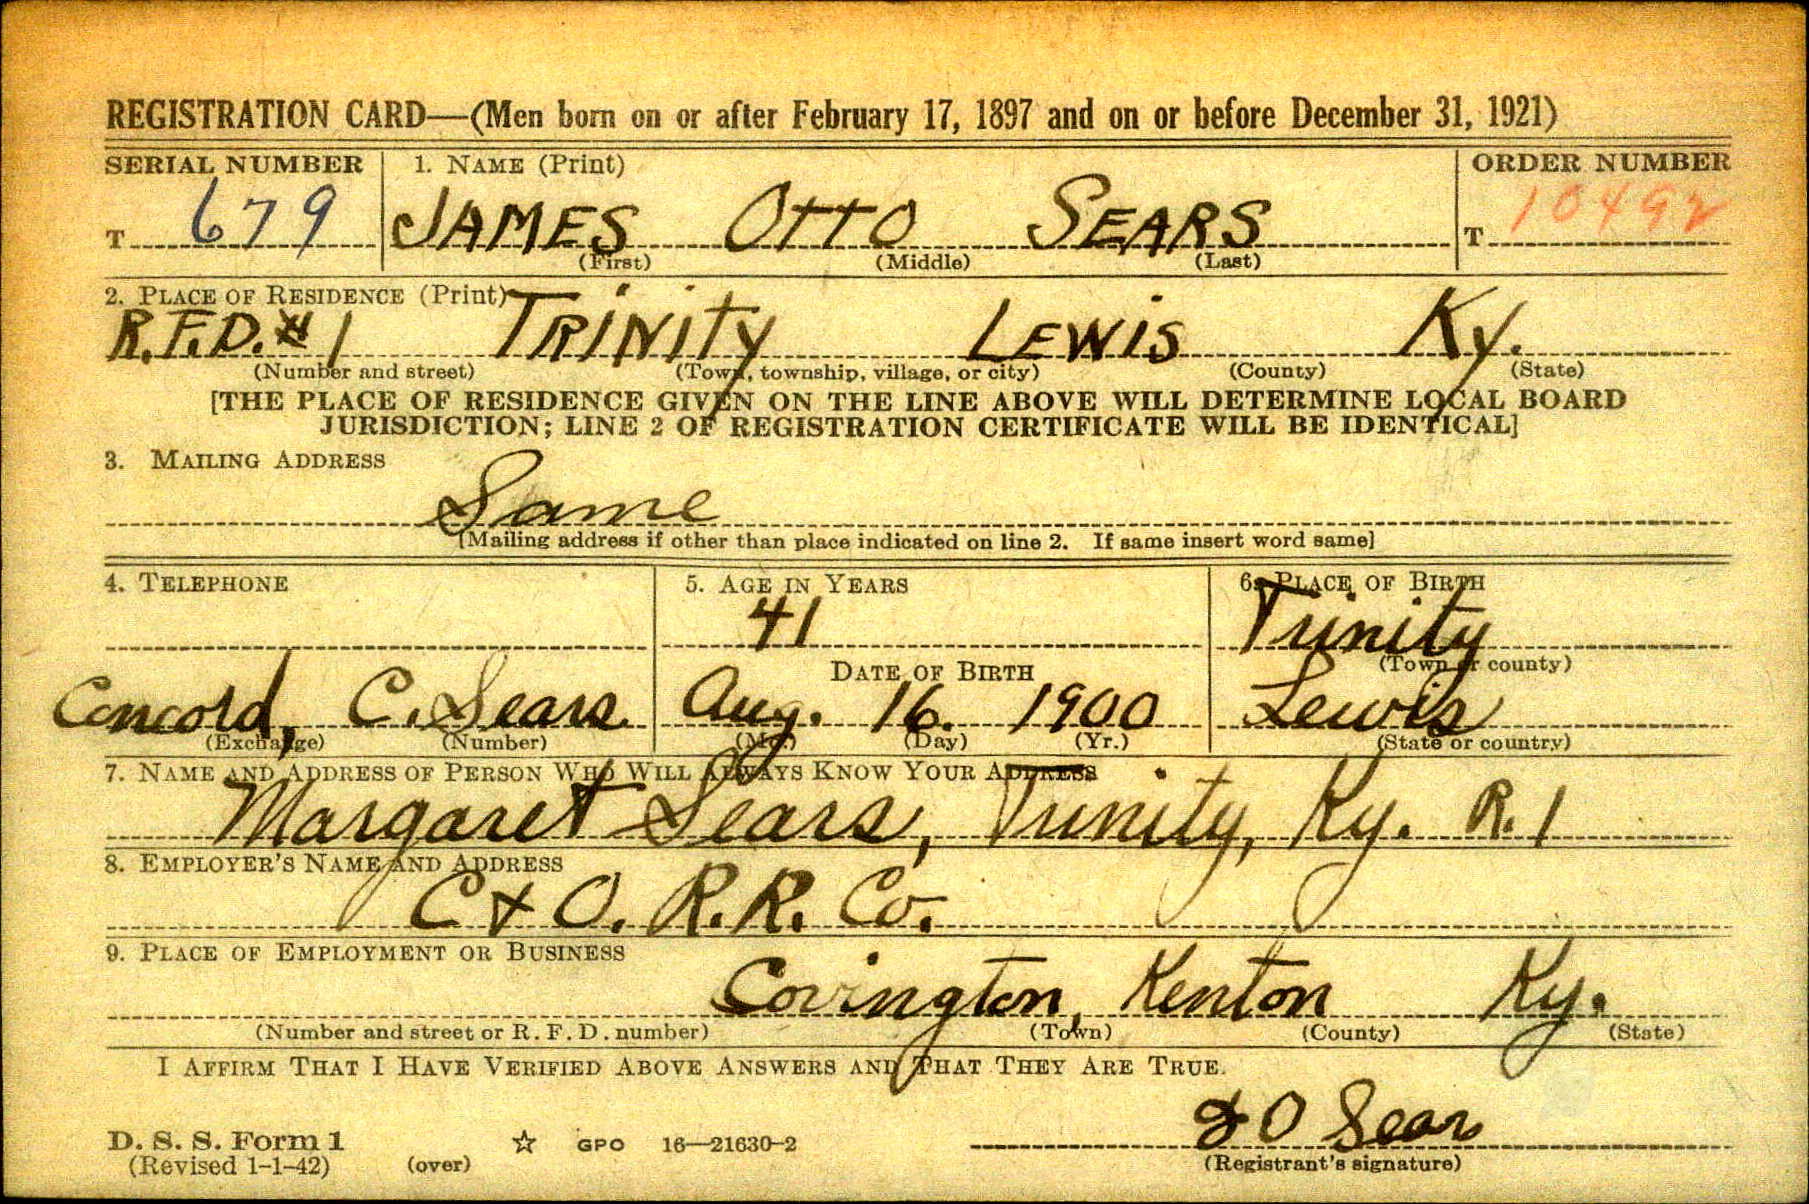 REGISTRATION CARD—(Men born on or after February 17, 1897 and on or before December 31, 1921)
SERIAL NUMBER 1. NAME (Print) ORDER NUMBER
T 679 JAMES OTTO SEARS T 10492
(First) (Middle) (Last)
2. PLACE OF RESIDENCE (Print)
R.F.D. # 1 TRINITY LEWIS Ky.
(Number and street) (Town, township, village, or city) (County) (State)
[THE PLACE OF RESIDENCE GIVEN ON THE LINE ABOVE WILL DETERMINE LOCAL BOARD
JURISDICTION; LINE 2 OF REGISTRATION CERTIFICATE WILL BE IDENTICAL]
3. MAILING ADDRESS
Same
[Mailing address if other than place indicated on line 2. If same insert word same]
4. TELEPHONE 5. AGE IN YEARS 6. PLACE OF BIRTH
41 Trinity
DATE OF BIRTH (Town or county)
Concord, C. Sears Aug. 16. 1900 Lewis
(Exchange) (Number) (Mo.) (Day) (Yr.) (State or country)
7. NAME AND ADDRESS OF PERSON WHO WILL ALWAYS KNOW YOUR ADDRESS
Margaret Sears, Trinity, Ky. R. 1
8. EMPLOYER'S NAME AND ADDRESS
C & O. R.R. Co.
9. PLACE OF EMPLOYMENT OR BUSINESS
Covington, Kenton Ky.
(Number and street or R. F. D. number) (Town) (County) (State)
I AFFIRM THAT I HAVE VERIFIED ABOVE ANSWERS AND THAT THEY ARE TRUE.
J O Sears
D. S. S. Form 1 ☆ GPO 16—21630-2
(Revised 1-1-42) (over) (Registrant's signature)